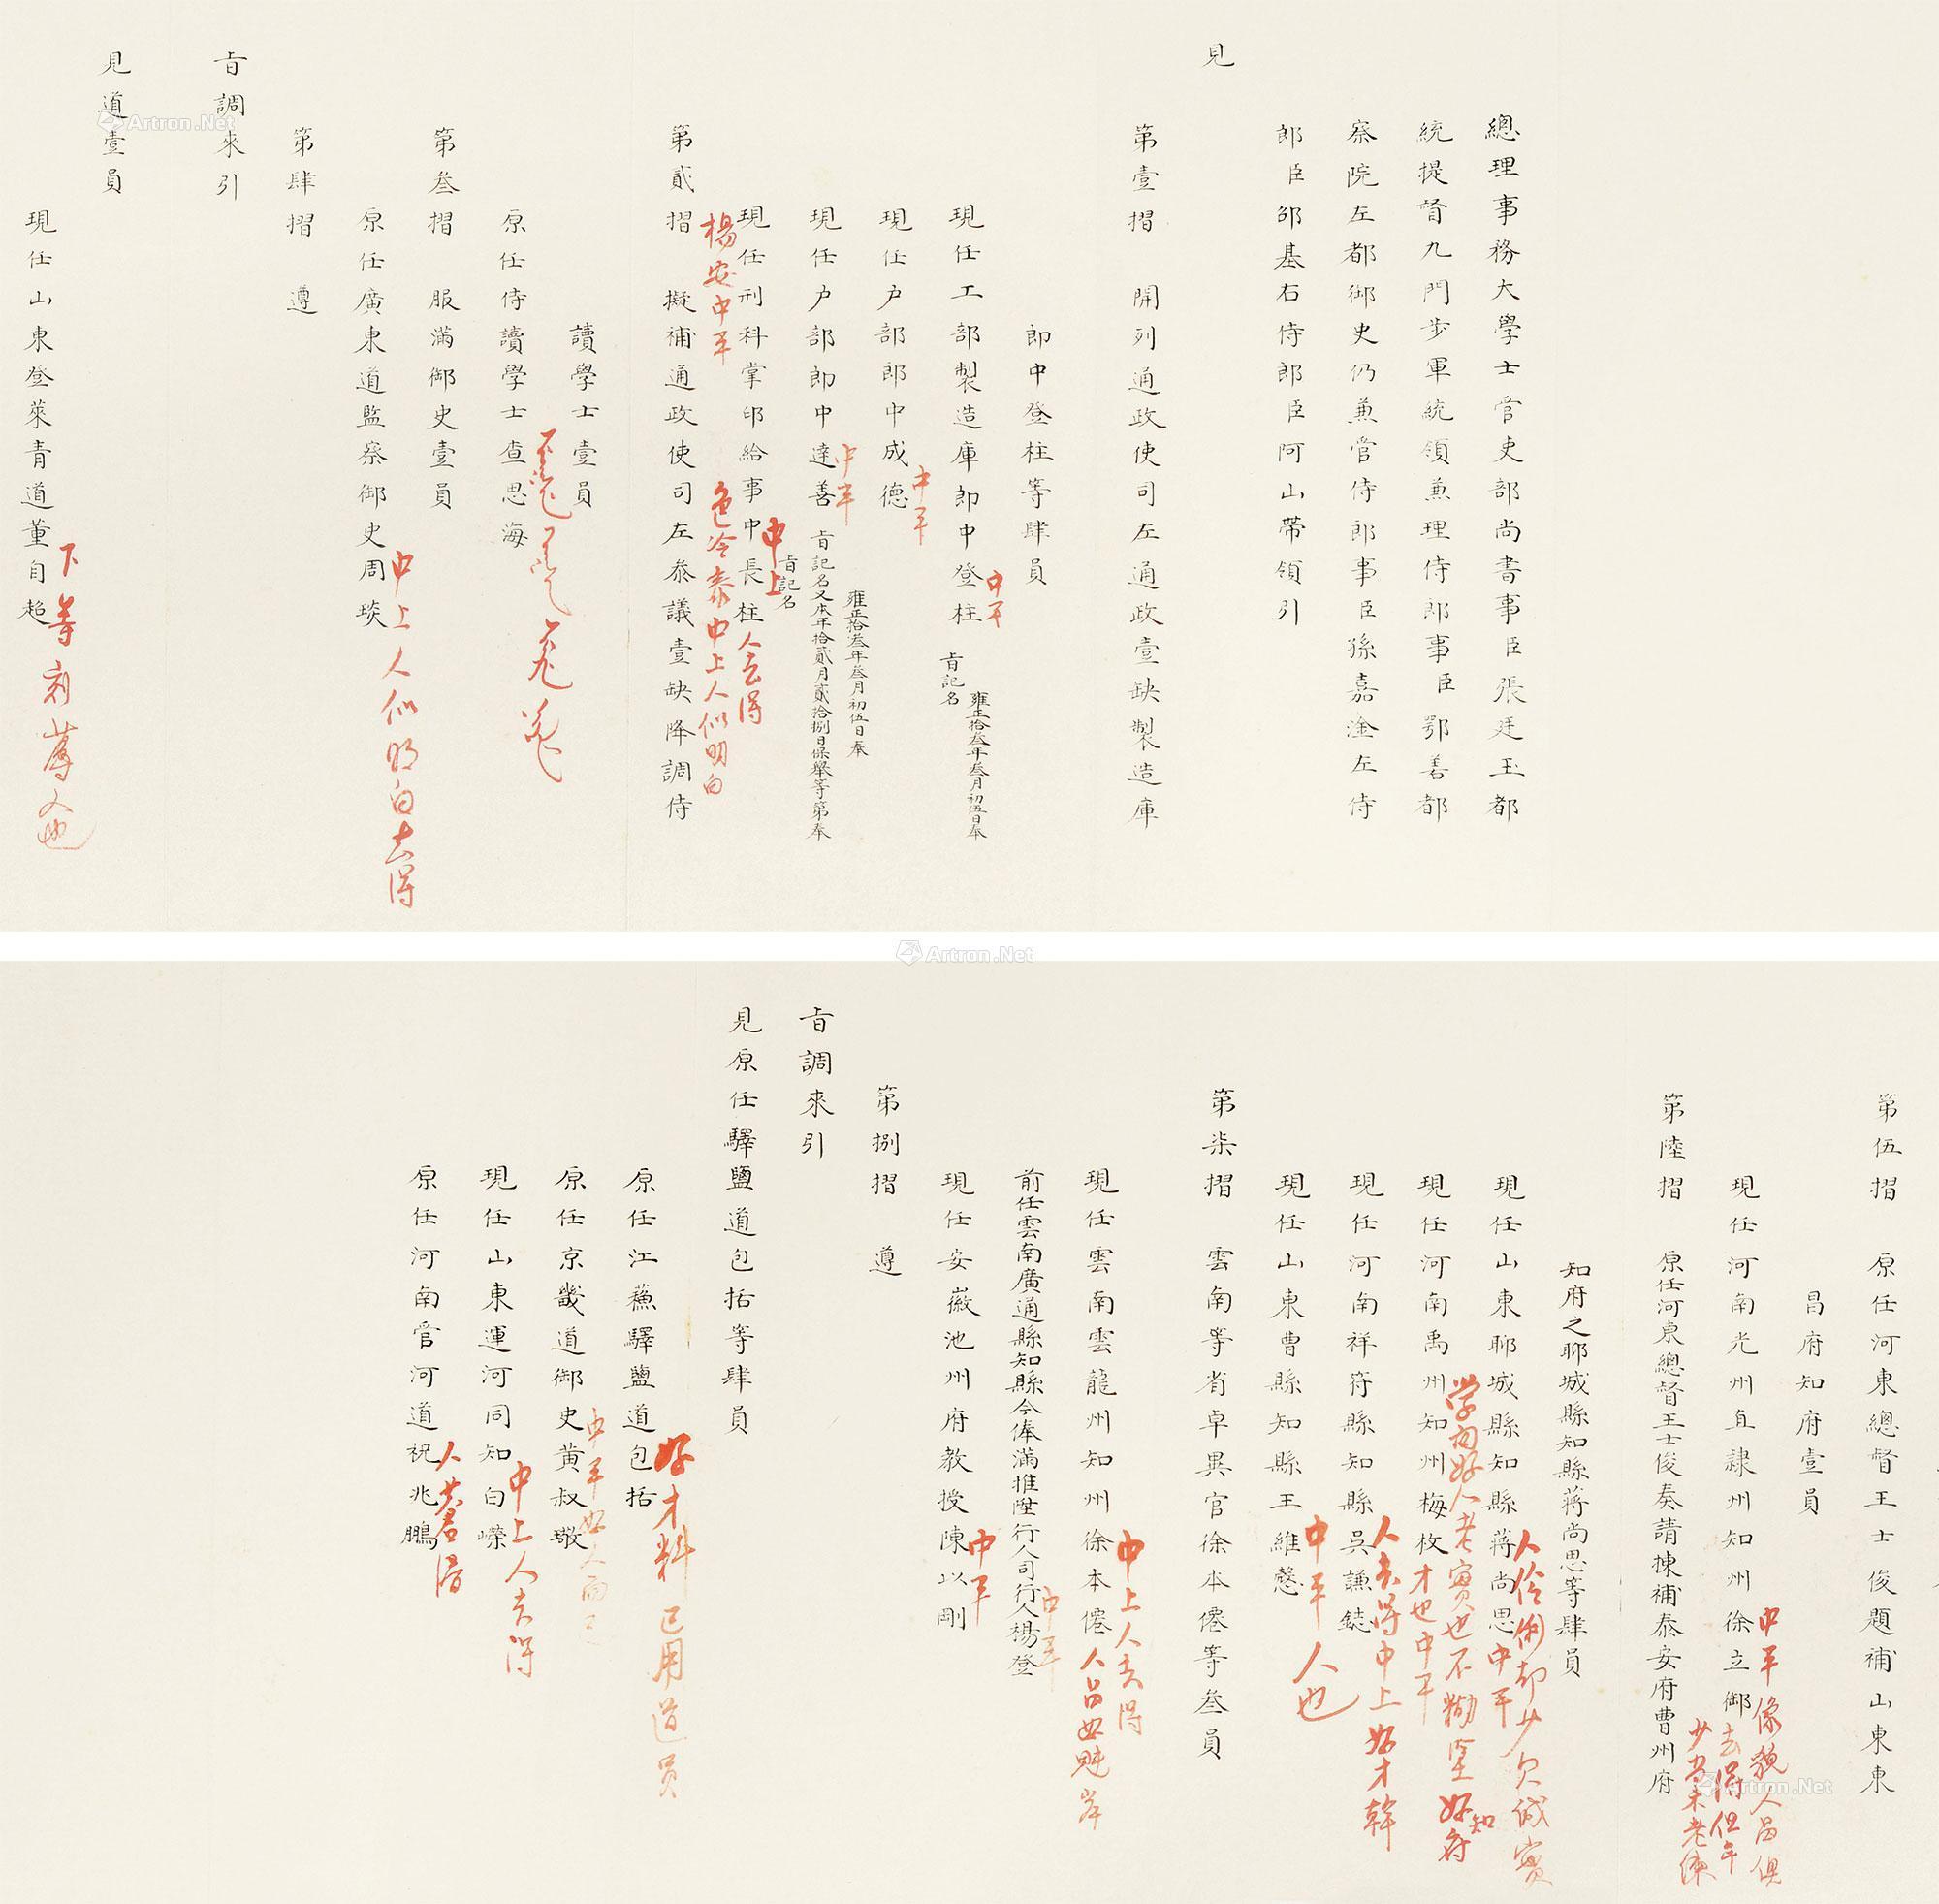 總理事務大學士管吏部尚書事臣張廷玉都
統提督九門步軍統領兼理侍郎事臣鄂善都
察院左都御史仍兼管侍郎事臣孫嘉淦左侍
郎臣邵基右侍郎臣阿山帶領引
見
第壹摺 開列通政使司左通政壹缺製造庫
郎中登柱等肆員
現任工部製造庫郎中登柱 雍正拾叁年叁月初伍日奉
旨記名
中平
現任户部郎中成德
中平
現任户部郎中達善 雍正拾叁年叁月初伍日奉
旨記名又本年拾貳月貳拾捌日保舉等第奉
旨記名
中平
現任刑科掌印給事中長柱
中上
人去得
楊安中平
色冷泰中上人似明白
第貳摺 擬補通政使司左叅議壹缺降調侍
讀學士壹員
原任侍讀學士查思海
第叁摺 服滿御史壹員
原任廣東道監察御史周琰
中上人似明白去得
第肆摺 遵
旨調來引
見道壹員
現任山東登萊青道董自超
下等刻薄人也
第伍摺 原任河東總督王士俊題補山東東
昌府知府壹員
現任河南光州直隸州知州徐立御
中平像貌人品俱
去得但年
少當未老練
第陸摺 原任河東總督王士俊奏請揀補泰安府曹州府
知府之聊城縣知縣蔣尚思等肆員
現任山東聊城縣知縣蔣尚思
人伶俐却少欠誠實
中平
現任河南禹州知州梅枚
学问好人老實也不糊塗好知府
才也中平
現任河南祥符縣知縣吳謙鋕
人去得中上好才幹
現任山東曹縣知縣王維懿
中平人也
第柒摺 雲南等省卓異官徐本僊等叁員
現任雲南雲龍州知州徐本僊
中上人去得
人品好魁岸
前任雲南廣通縣知縣今俸滿推陞行人司行人楊登
中平
現任安徽池州府教授陳以剛
中平
第捌摺 遵
旨調來引
見原任驛鹽道包括等肆員
原任江蘇驛鹽道包括
好才料 已用道員
原任京畿道御史黃叔敬
中平好人而已
現任山東運河同知白嶸
中上人去得
原任河南管河道祝兆鵬
人去得
Artron.Net
Artron.Net
Artron.Net